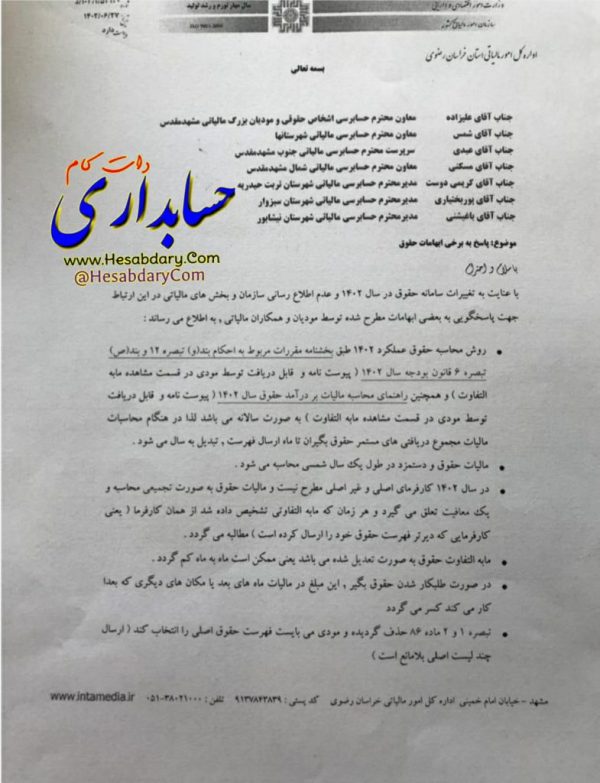 وزارت امور اقتصادی و دارایی
سازمان امور مالیاتی کشور
سال مهار تورم و رشد تولید
ISO 9001:2000
۱۴۰۲/۰۶/۲۷
دارد
اداره کل امور مالیاتی استان خراسان رضوی
بسمه تعالی
جناب آقای علیزاده معاون محترم حسابرسی اشخاص حقوقی و مودیان بزرگ مالیاتی مشهدمقدس
جناب آقای شمس معاون محترم حسابرسی مالیاتی شهرستانها
جناب آقای عبدی سرپرست محترم حسابرسی مالیاتی جنوب مشهدمقدس
جناب آقای مسکنی معاون محترم حسابرسی مالیاتی شمال مشهدمقدس
جناب آقای کریمی دوست مدیرمحترم حسابرسی مالیاتی شهرستان تربت حیدریه
جناب آقای پوربختیاری مدیرمحترم حسابرسی مالیاتی شهرستان سبزوار
جناب آقای باغیشنی مدیرمحترم حسابرسی مالیاتی شهرستان نیشابور
دات کام
حسابداری
www.Hesabdary.Com
@HesabdaryCom
موضوع: پاسخ به برخی ابهامات حقوق
باسلام و احترام
با عنایت به تغییرات سامانه حقوق در سال ۱۴۰۲ و عدم اطلاع رسانی سازمان و بخش های مالیاتی در این ارتباط
جهت پاسخگویی به بعضی ابهامات مطرح شده توسط مودیان و همکاران مالیاتی , به اطلاع می رساند :
• روش محاسبه حقوق عملکرد ۱۴۰۲ طبق بخشنامه مقررات مربوط به احکام بند(و) تبصره ۱۲ و بند(ص)
تبصره ۶ قانون بودجه سال ۱۴۰۲ ( پیوست نامه و قابل دریافت توسط مودی در قسمت مشاهده مابه
التفاوت ) و همچنین راهنمای محاسبه مالیات بر درآمد حقوق سال ۱۴۰۲ ( پیوست نامه و قابل دریافت
توسط مودی در قسمت مشاهده مابه التفاوت ) به صورت سالانه می باشد لذا در هنگام محاسبات
مالیات مجموع دریافتی های مستمر حقوق بگیران تا ماه ارسال فهرست , تبدیل به سال می شود .
• مالیات حقوق و دستمزد در طول یک سال شمسی محاسبه می شود .
• در سال ۱۴۰۲ کارفرمای اصلی و غیر اصلی مطرح نیست و مالیات حقوق به صورت تجمیعی محاسبه و
یک معافیت تعلق می گیرد و هر زمان که مابه التفاوتی تشخیص داده شد از همان کارفرما ( یعنی
کارفرمایی که دیرتر فهرست حقوق خود را ارسال کرده است ) مطالبه می گردد .
• مابه التفاوت حقوق به صورت تعدیل شده می باشد یعنی ممکن است ماه به ماه کم گردد .
• در صورت طلبکار شدن حقوق بگیر , این مبلغ در مالیات ماه های بعد یا مکان های دیگری که بعدا
کار می کند کسر می گردد
• تبصره ۱ و ۲ ماده ۸۶ حذف گردیده و مودی می بایست فهرست حقوق اصلی را انتخاب کند ( ارسال
چند لیست اصلی بلامانع است )
مشهد – خیابان امام خمینی اداره کل امور مالیاتی خراسان رضوی کد پستی : ۹۱۳۷۸۴۳۸۳۹ تلفن : ۳۸۰۲۱۰۰۰-۰۵۱ www.intamedia.ir